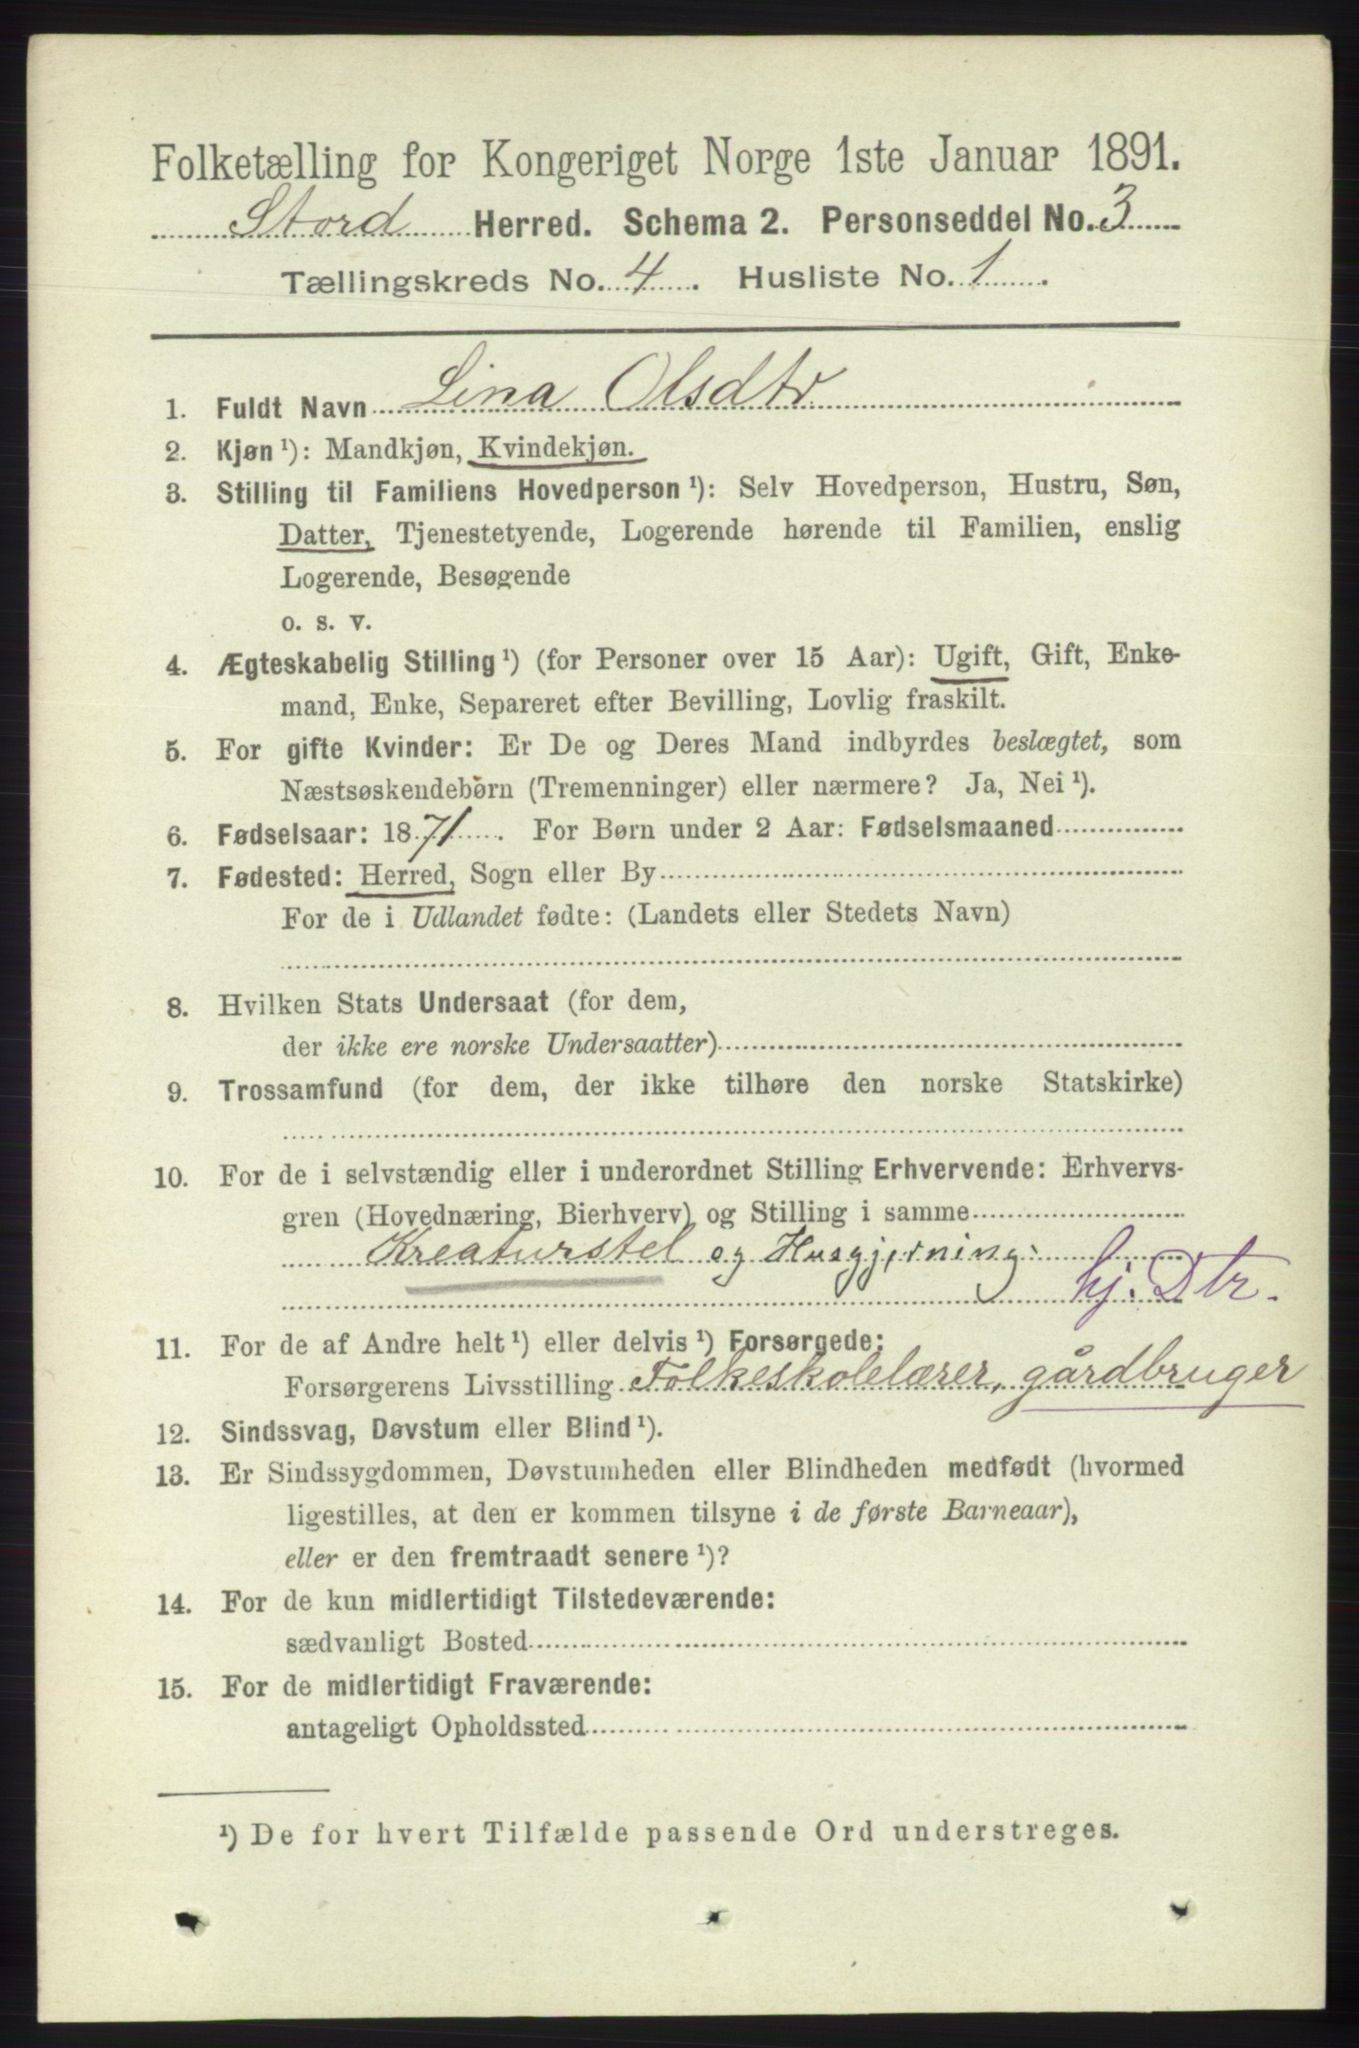 Folketælling for Kongeriget Norge 1ste Januar 1891.
Stord Herred. Schema 2. Personseddel No. 3
Tællingskreds No. 4. Husliste No. 1.
1. Fuldt Navn Lina Olsdtr
2. Kjøn ¹): Mandkjøn, Kvindekjøn.
3. Stilling til Familiens Hovedperson ¹): Selv Hovedperson, Hustru, Søn,
Datter, Tjenestetyende, Logerende hørende til Familien, enslig
Logerende, Besøgende
o. s. v.
4. Ægteskabelig Stilling ¹) (for Personer over 15 Aar): Ugift, Gift, Enke-
mand, Enke, Separeret efter Bevilling, Lovlig fraskilt.
5. For gifte Kvinder: Er De og Deres Mand indbyrdes beslægtet, som
Næstsøskendebørn (Tremenninger) eller nærmere? Ja, Nei ¹).
6. Fødselsaar: 1871. For Børn under 2 Aar: Fødselsmaaned
7. Fødested: Herred, Sogn eller By
For de i Udlandet fødte: (Landets eller Stedets Navn)
8. Hvilken Stats Undersaat (for dem,
der ikke ere norske Undersaatter)
9. Trossamfund (for dem, der ikke tilhøre den norske Statskirke)
10. For de i selvstændig eller i underordnet Stilling Erhvervende: Erhvervs-
gren (Hovednæring, Bierhverv) og Stilling i samme
Kreaturstel og Husgjerning.
hj. Dtr.
11. For de af Andre helt ¹) eller delvis ¹) Forsørgede:
Forsørgerens Livsstilling Folkeskolelærer, gårdbruger
12. Sindssvag, Døvstum eller Blind ¹).
13. Er Sindssygdommen, Døvstumheden eller Blindheden medfødt (hvormed
ligestilles, at den er kommen tilsyne i de første Barneaar),
eller er den fremtraadt senere ¹)?
14. For de kun midlertidigt Tilstedeværende:
sædvanligt Bosted
15. For de midlertidigt Fraværende:
antageligt Opholdssted
¹) De for hvert Tilfælde passende Ord understreges.